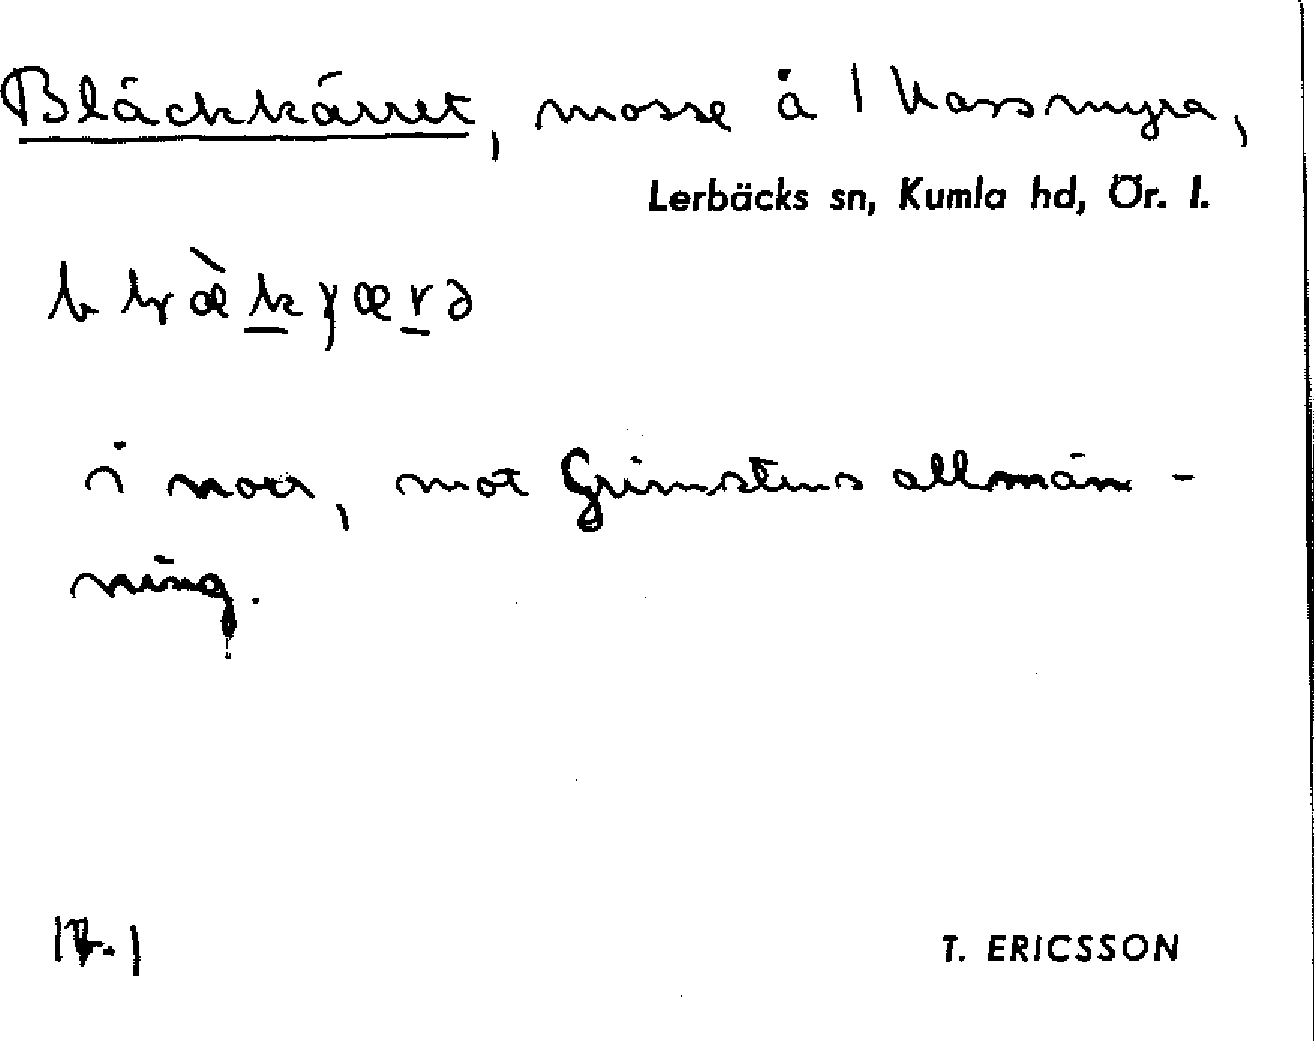 Bläckkärret, mosse å 1 Kassmyra,
Lerbäcks sn, Kumla hd, Ör. l.
i norr, mot Grimstens allmän-
ning.
T. ERICSSON